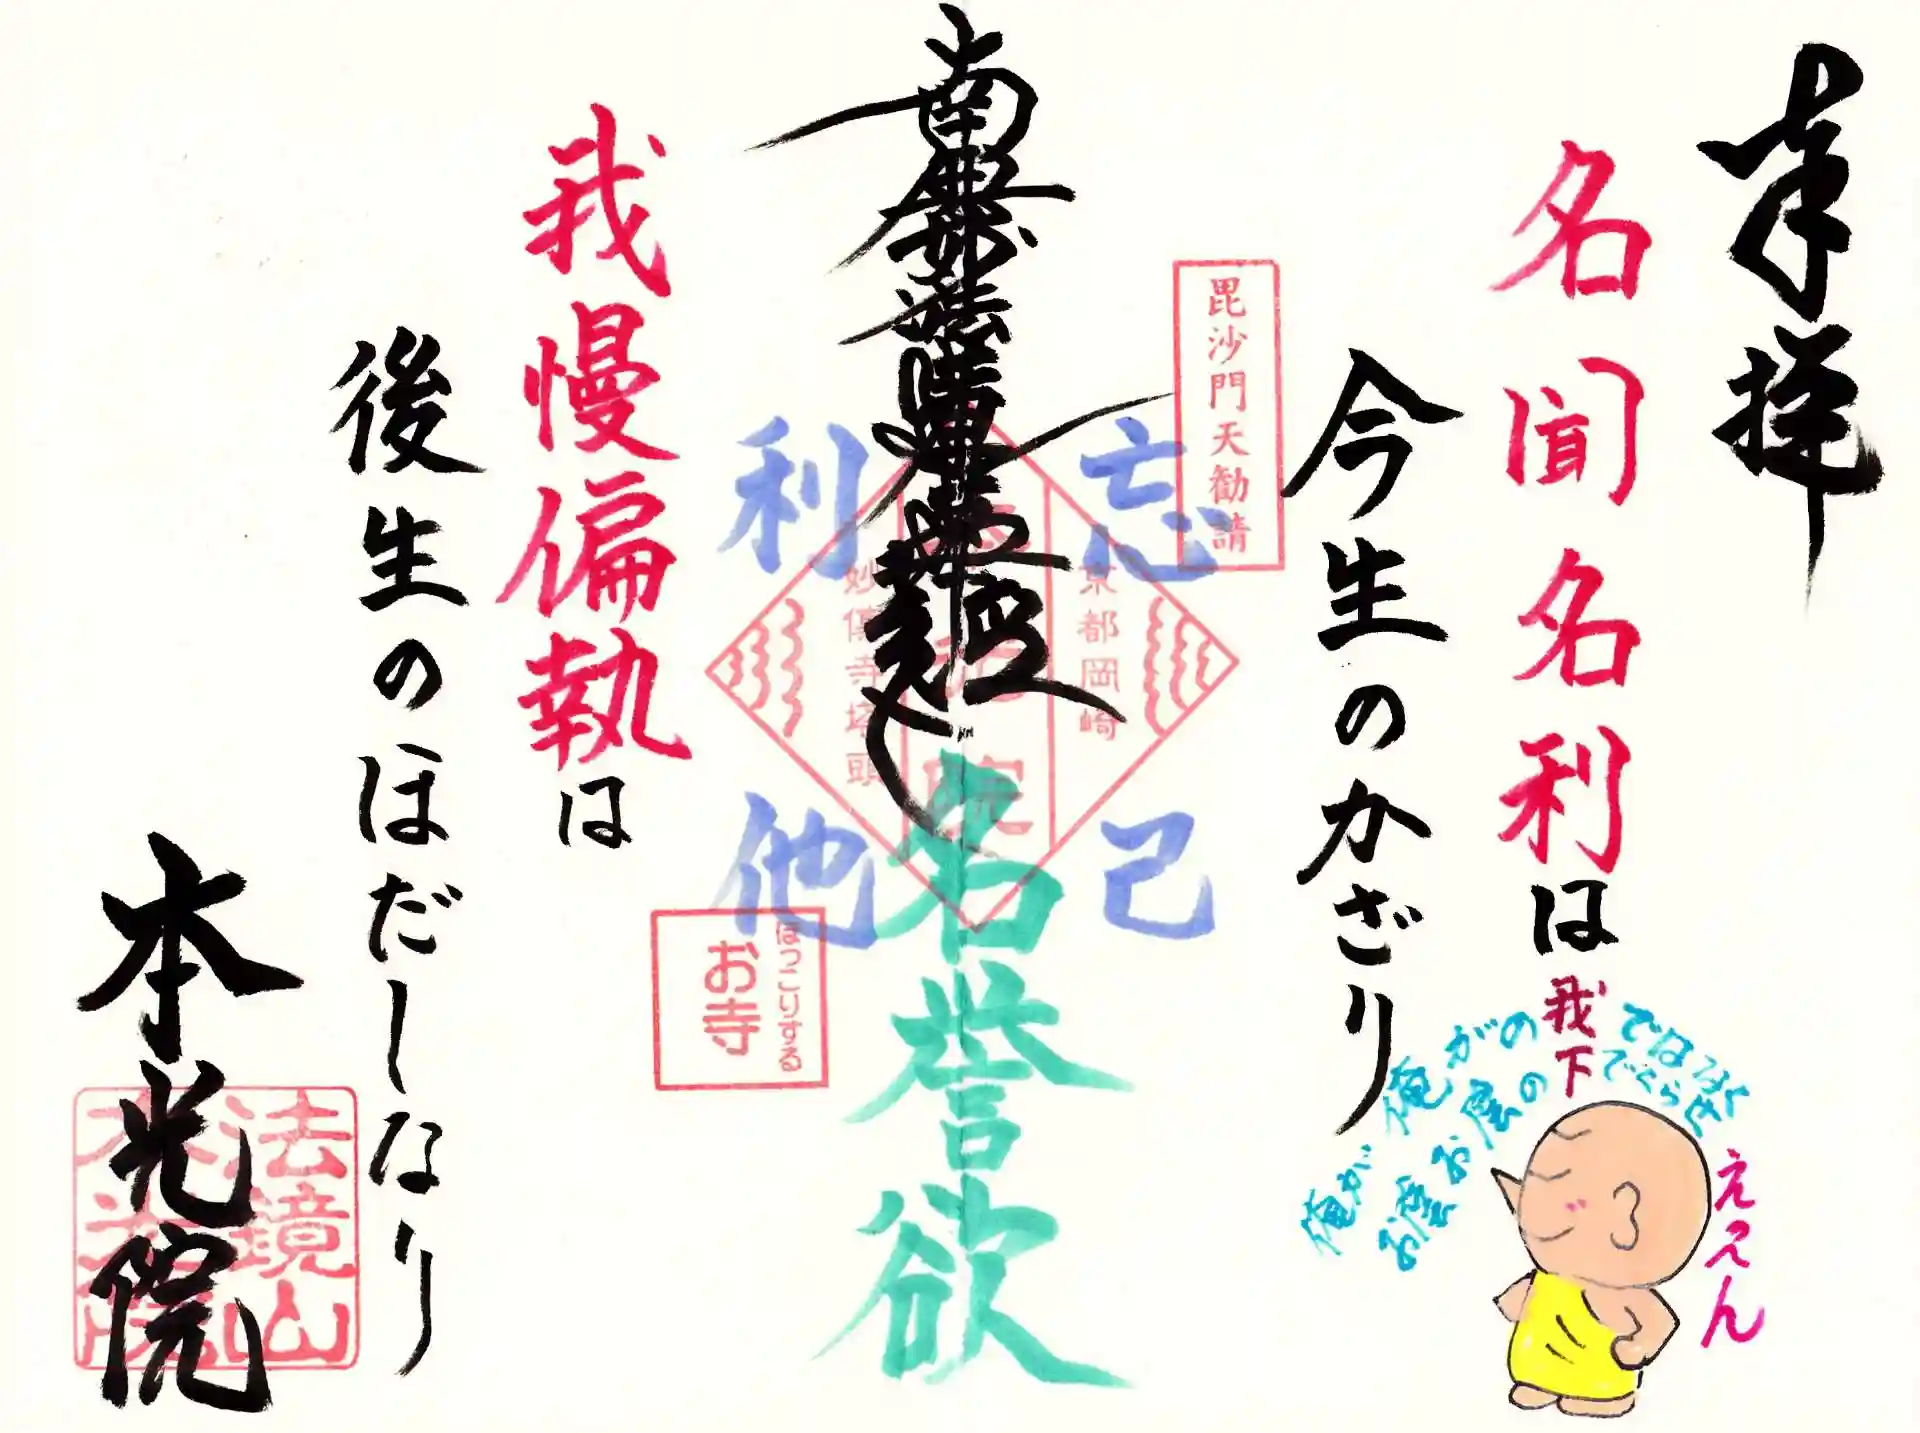 奉拝
名聞名利は
今生のかざり
毘沙門天勧請
忘己
利他
京都岡崎
妙傳寺塔頭
本光院
南無妙法蓮華経
名誉欲
ほっこりする
お寺
我慢偏執は
後生のほだしなり
本光院
法鏡山
本光院
俺が俺がの我ではなく
お陰お陰の下でくらせ
ええん